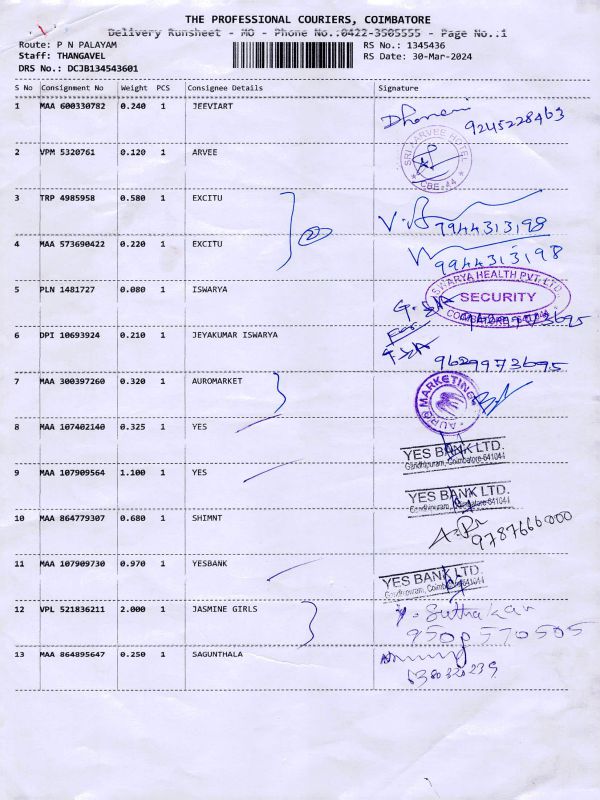 THE PROFESSIONAL COURIERS, COIMBATORE
Delivery Runsheet - MO - Phone No.:0422-3505555 - Page No.:1
Route: P N PALAYAM RS No.: 1345436
Staff: THANGAVEL RS Date: 30-Mar-2024
DRS No.: DCJB134543601
S No Consignment No Weight PCS Consignee Details Signature
1 MAA 600330782 0.240 1 JEEVIART
9245228463
2 VPM 5320761 0.120 1 ARVEE
SRI ARVEE HOTEL
CBE-44
3 TRP 4985958 0.580 1 EXCITU
7944313198
4 MAA 573690422 0.220 1 EXCITU
9944313198
5 PLN 1481727 0.080 1 ISWARYA
SWARYA HEALTH PVT. LTD.
SECURITY
6 DPI 10693924 0.210 1 JEYAKUMAR ISWARYA
9629973695
7 MAA 300397260 0.320 1 AUROMARKET
AURO MARKETING
8 MAA 107402140 0.325 1 YES
YES BANK LTD.
Gandhipuram, Coimbatore-641044
9 MAA 107909564 1.100 1 YES
YES BANK LTD.
Gandhipuram, Coimbatore-641044
10 MAA 864779307 0.680 1 SHIMNT
9787666000
11 MAA 107909730 0.970 1 YESBANK
YES BANK LTD.
Gandhipuram, Coimbatore-641044
12 VPL 521836211 2.000 1 JASMINE GIRLS
9500570505
13 MAA 864895647 0.250 1 SAGUNTHALA